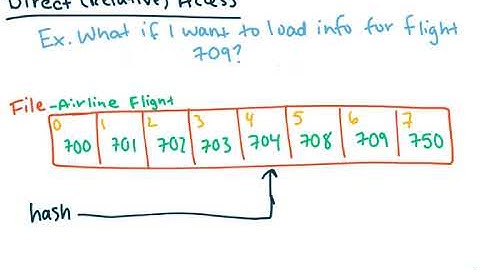 Direct (Relative) Access
Ex. What if I want to load info for flight
709?
File - Airline Flight
0 1 2 3 4 5 6 7
700 701 702 703 704 708 709 750
hash